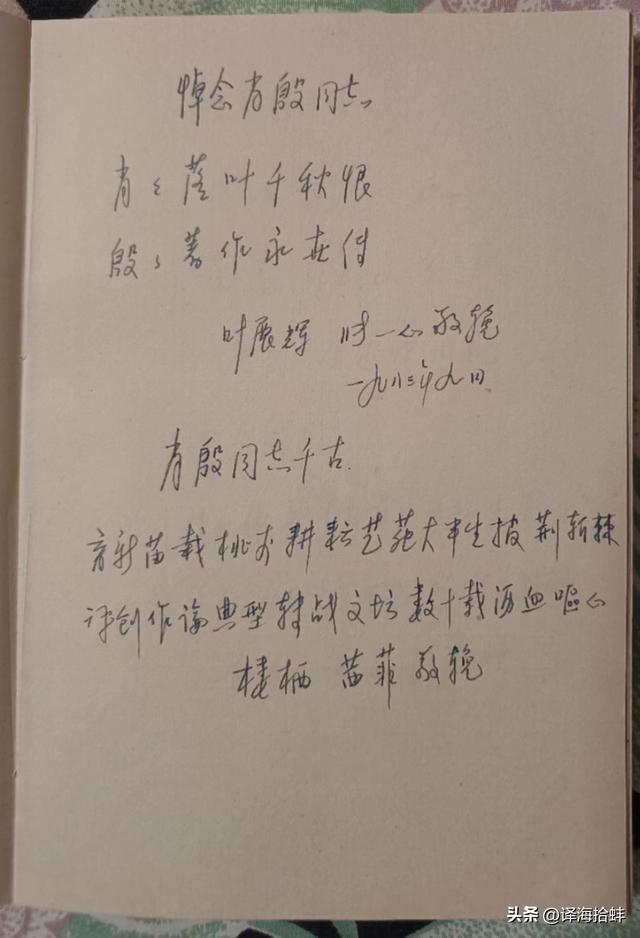 悼念肖殷同志
肖〻落叶千秋恨
殷〻著作永在传
叶展辉 时一心敬挽
一九八三年九月
肖殷同志千古.
育新苗栽桃李耕耘艺苑大半生披荆斩棘
评创作論典型转战文坛数十载沥血呕心
楼栖 茵菲敬挽
头条 @译海拾蚌